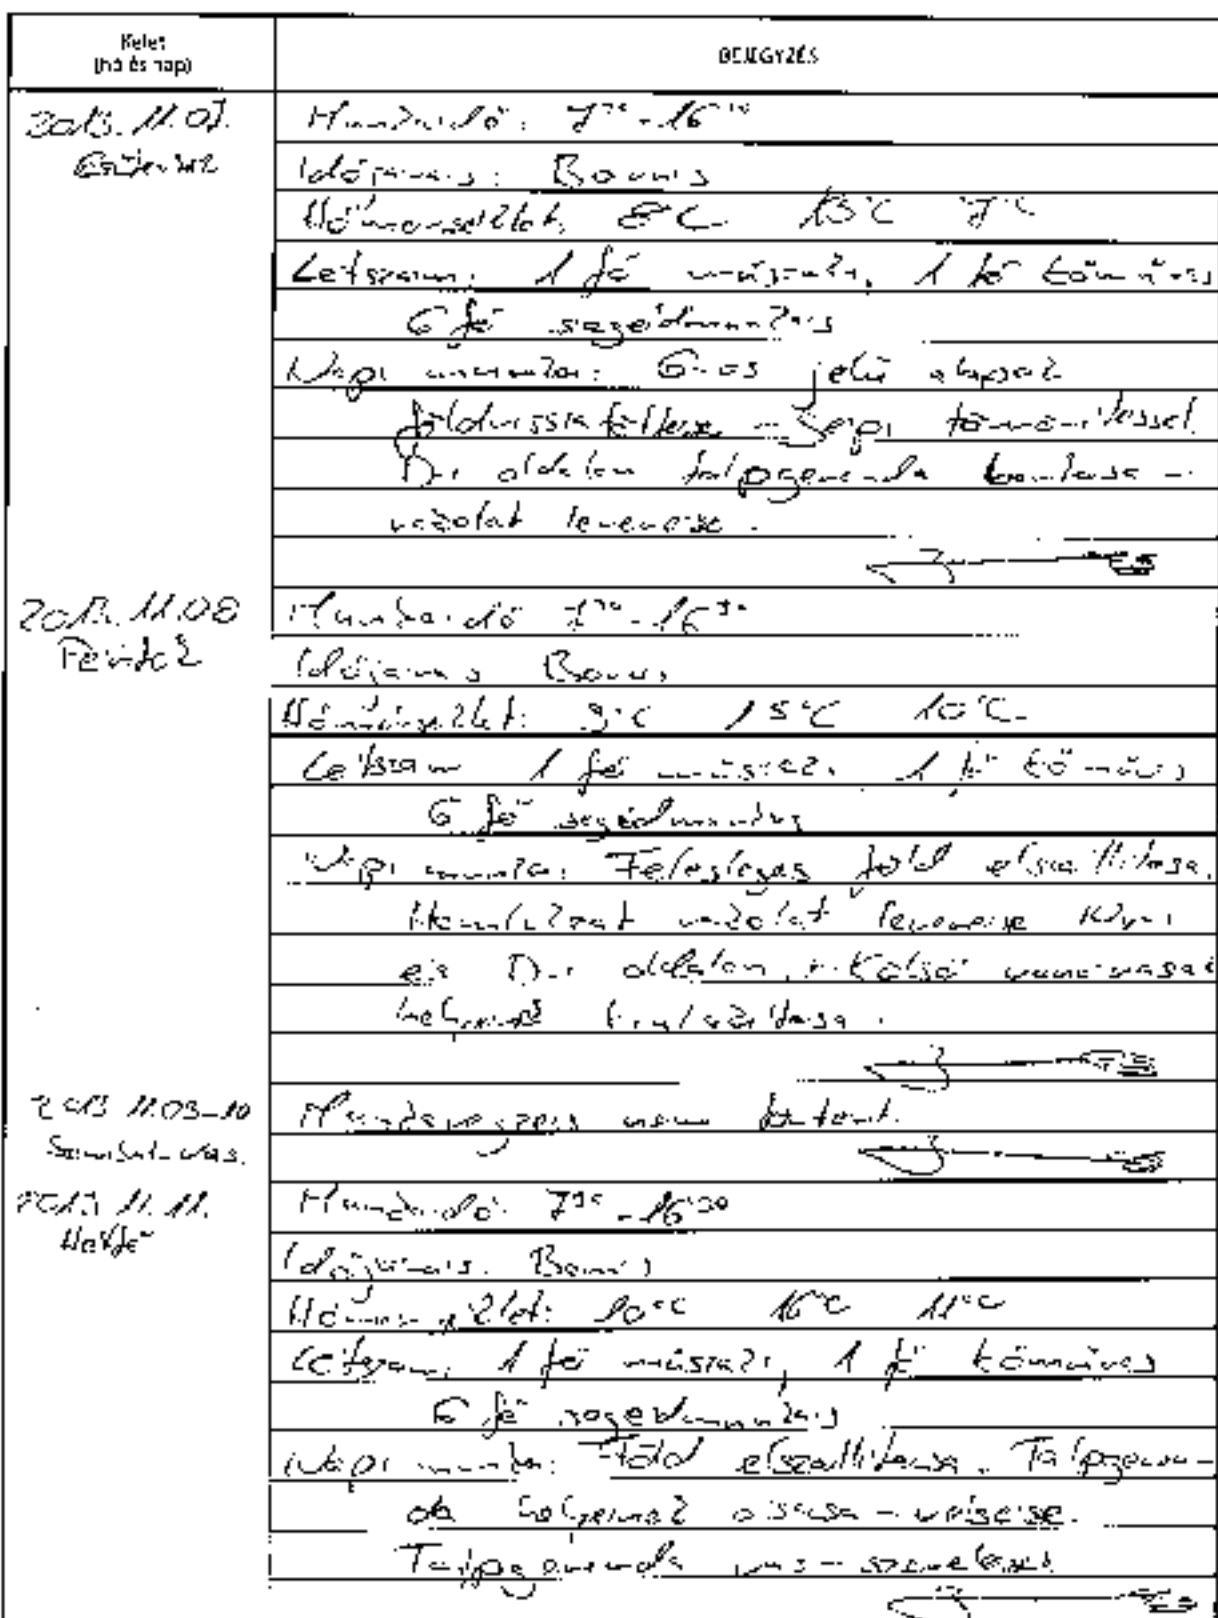 Kelet
(hó és nap)
BEJEGYZÉS
2013. 11. 07.
Csütörtök
Munkaidő: 7³⁰-16³⁰
Időjárás: Borús
Hőmérséklet: 8°C 13°C 7°C
Létszám: 1 fő műszaki, 1 fő kőműves
6 fő segédmunkás
Napi munka: G-os jelű alapok
földvisszatöltése - gépi tömörítéssel.
D-i oldalon talpgerenda
vázolat
2013. 11.08
Péntek
Munkaidő 7³⁰-16³⁰
Időjárás Borús
Hőmérséklet: 9°C 15°C 10°C
Létszám 1 fő műszaki 1 fő kőműves
6 fő segédmunkás
Napi munka: Felesleges föld elszállítása.
vázolat
és D-i oldalon, külső
helyének kialakítása.
2013 11.09-10
Szombat-Vas.
Munkavégzés nem történt.
2013 11. 11.
Hétfő
Munkaidő: 7³⁰-16³⁰
Időjárás: Borús
Hőmérséklet: 10°C 16°C 11°C
Létszám: 1 fő műszaki, 1 fő kőműves
6 fő segédmunkás
Napi munka: Föld elszállítása. Talpgeren-
da helyének ásása - vésése.
Talpgerenda vas-szerelése